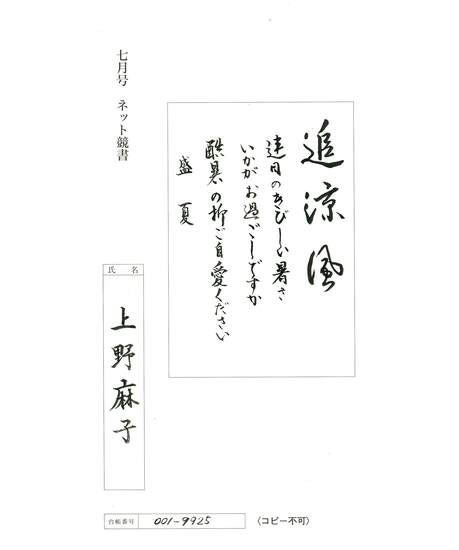 七月号 ネット競書
追涼風
連日のきびしい暑さ
いかがお過ごしですか
酷暑の折ご自愛ください
盛夏
氏名
上野麻子
台帳番号
001-9925
〈コピー不可〉